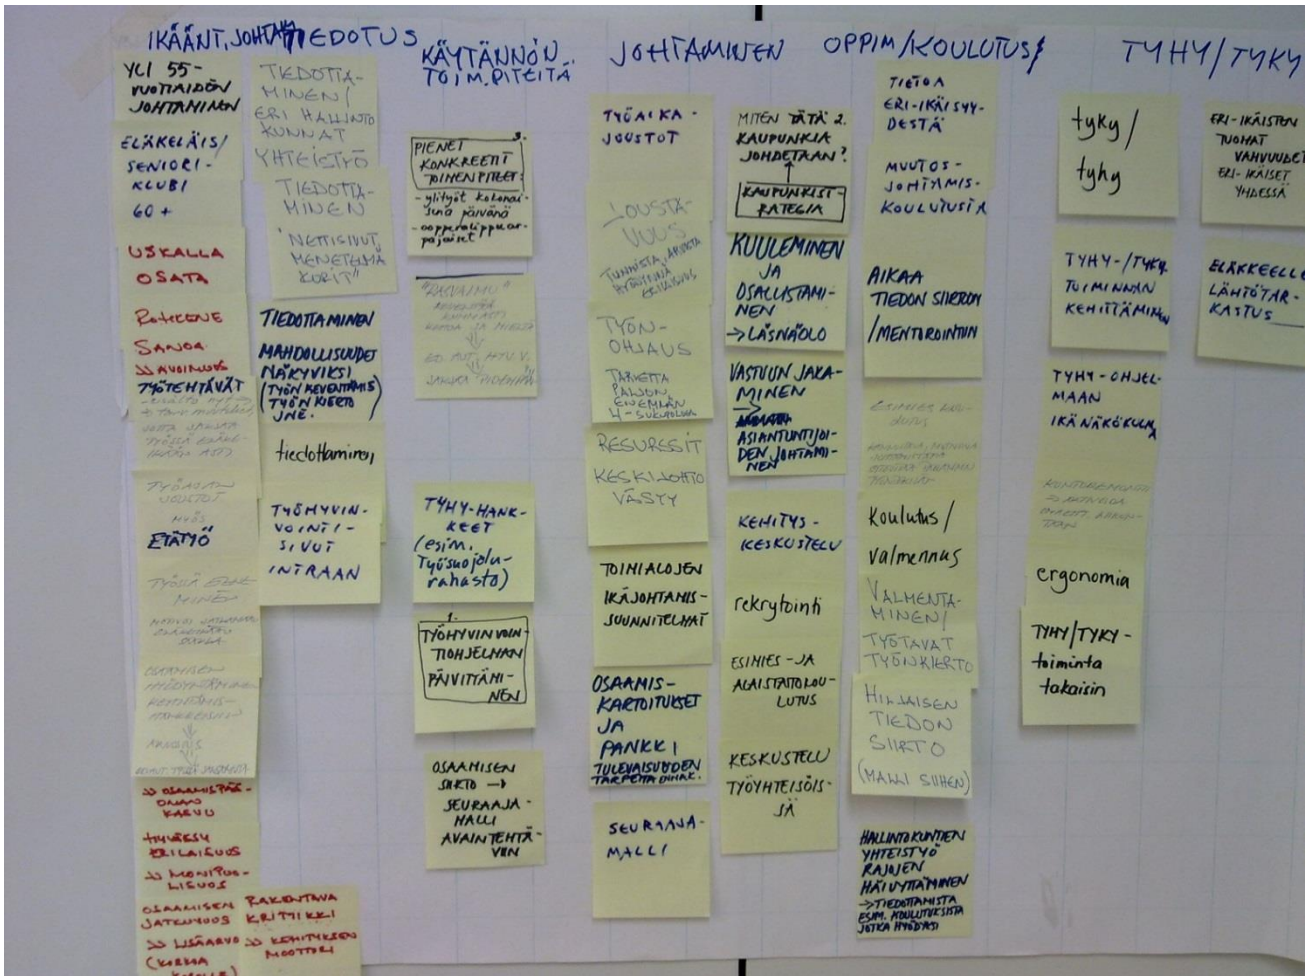 IKÄÄNT. JOHTAM
TIEDOTUS
KÄYTÄNNÖN
TOIM.PITEITÄ
JOHTAMINEN
OPPIM/KOULUTUS
TYHY/TYKY
YLI 55-
VUOTIAIDEN
JOHTAMINEN
ELÄKELÄIS/
SENIORI-
KLUBI
60 +
USKALLA
OSATA
ROHKENE
SANOA
>> AVOIMUUS
TYÖTEHTÄVÄT
TYÖAJAN
JOUSTOT
MYÖS
ETÄTYÖ
OSAAMISEN
HYÖDYNTÄMINEN
>> OSAAMISPÄÄ-
OMAN
KASVU
HYVÄKSY
ERILAISUUS
>> MONIPUO-
LISUUS
OSAAMISEN
JATKUVUUS
>> LISÄARVO
RAKENTAVA
KRITIIKKI
>> KEHITYKSEN
MOOTTORI
TIEDOTTA-
MINEN/
ERI HALLINTO
KUNNAT
YHTEISTYÖ
TIEDOTTA-
MINEN
"NETTISIVUT,
MENETELMÄ
KORIT"
TIEDOTTAMINEN
MAHDOLLISUUDET
NÄKYVIKSI
(TYÖN KEVENTÄMIS
TYÖN KIERTO
JNE.
tiedottaminen
TYÖHYVIN-
VOINTI-
SIVUT
INTRAAN
3.
PIENET
KONKREETIT
TOIMENPITEET:
- ylityöt kokonai-
sina päivinä
- oopperalippuar-
pajaiset
TYHY-HANK-
KEET
(esim.
Työsuojelu-
rahasto)
1.
TYÖHYVINVOIN-
TIOHJELMAN
PÄIVITTÄMI-
NEN
OSAAMISEN
SIIRTO →
SEURAAJA-
MALLI
AVAINTEHTÄ-
VIIN
TYÖAIKA-
JOUSTOT
JOUSTA-
VUUS
TUNNISTA, ARVOSTA
HYÖDYNNÄ
ERILAISUUS
TYÖN-
OHJAUS
TARVETTA
PALJON
ENEMMÄN
RESURSSIT
KESKIJOHTO
VÄSYY
TOIMIALOJEN
IKÄJOHTAMIS-
SUUNNITELMAT
OSAAMIS-
KARTOITUKSET
JA
PANKKI
TULEVAISUUDEN
TARPEITA
SEURAAJA-
MALLI
MITEN TÄTÄ 2.
KAUPUNKIA
JOHDETAAN?
↑
KAUPUNKIST-
RATEGIA
KUULEMINEN
JA
OSALLISTAMI-
NEN
→ LÄSNÄOLO
VASTUUN JAKA-
MINEN
→
ASIANTUNTIJOI-
DEN JOHTAMI-
NEN
KEHITYS-
KESKUSTELU
rekrytointi
ESIMIES- JA
ALAISTAITOKOU-
LUTUS
KESKUSTELU
TYÖYHTEISÖIS-
SÄ
TIETOA
ERI-IKÄISYY-
DESTÄ
MUUTOS-
JOHTAMIS-
KOULUTUSTA
AIKAA
TIEDON SIIRTOON
/MENTOROINTIIN
ESIMIESKOU-
LUTUS
koulutus/
valmennus
VALMENTA-
MINEN/
TYÖTAVAT
TYÖNKIERTO
HILJAISEN
TIEDON
SIIRTO
(MALLI SIIHEN)
HALLINTOKUNTIEN
YHTEISTYÖ
RAJOJEN
HÄIVYTTÄMINEN
→ TIEDOTTAMISTA
ESIM. KOULUTUKSISTA
JOTKA HYÖDYKSI
tyky/
tyhy
TYHY-/TYKY-
TOIMINNAN
KEHITTÄMINEN
TYHY-OHJEL-
MAAN
IKÄNÄKÖKULMA
ergonomia
TYHY/TYKY-
toiminta
takaisin
ERI-IKÄISTEN
TUOMAT
VAHVUUDET
ERI-IKÄISET
YHDESSÄ
ELÄKKEELLE
LÄHTÖTAR-
KASTUS